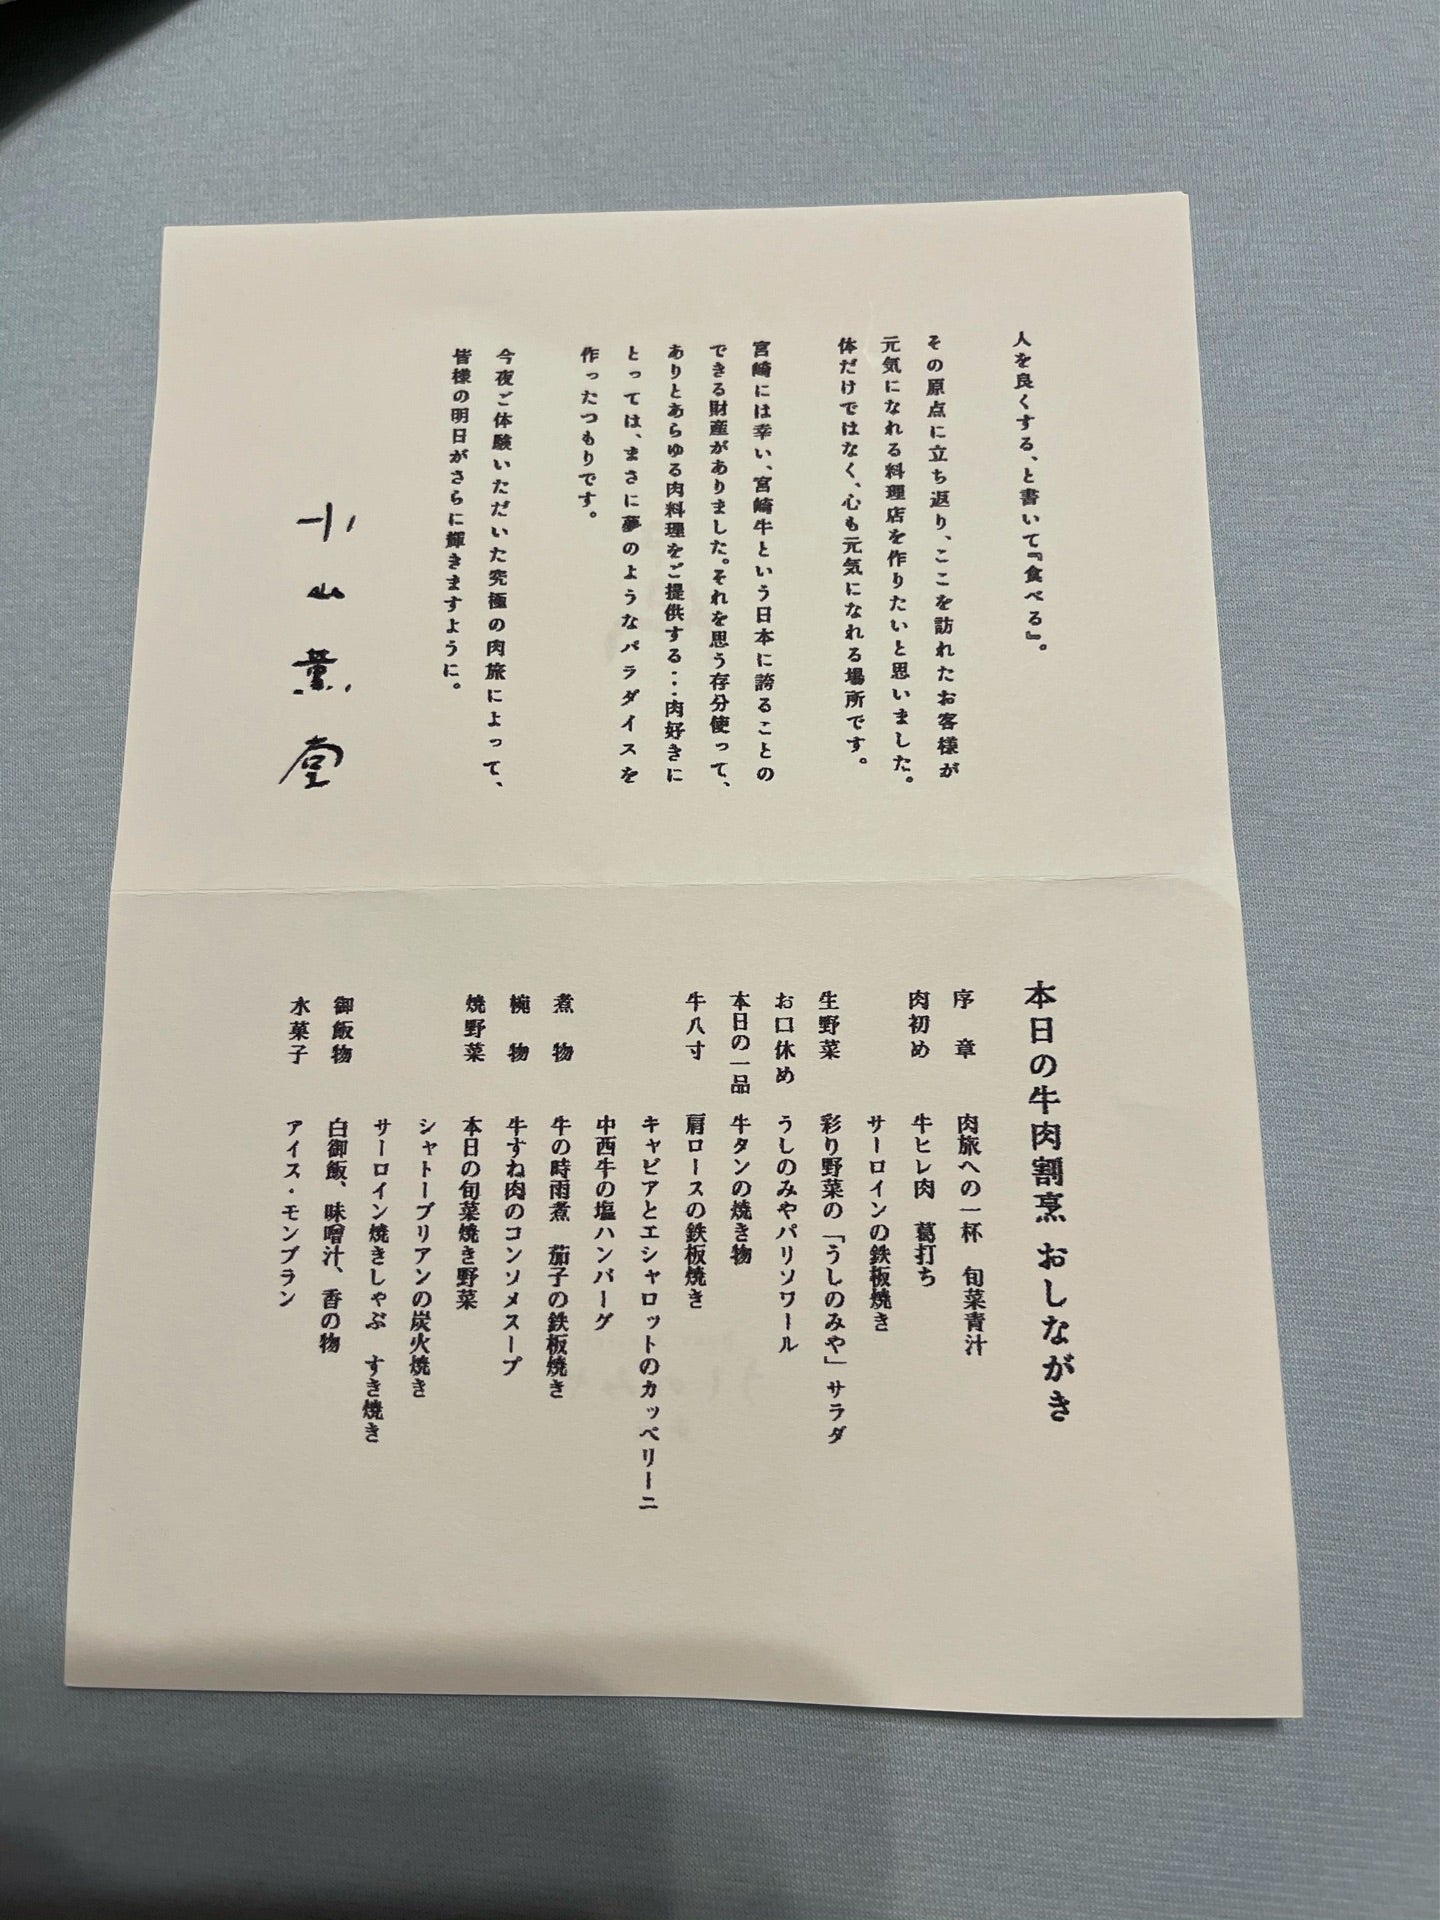 人を良くする、と書いて『食べる』。
その原点に立ち返り、ここを訪れたお客様が
元気になれる料理店を作りたいと思いました。
体だけではなく、心も元気になれる場所です。
宮崎には幸い、宮崎牛という日本に誇ることの
できる財産がありました。それを思う存分使って、
ありとあらゆる肉料理をご提供する・・・肉好きに
とっては、まさに夢のようなパラダイスを
作ったつもりです。
今夜ご体験いただいた究極の肉旅によって、
皆様の明日がさらに輝きますように。
小山薫堂
本日の牛肉割烹 おしながき
序章 肉旅への一杯 旬菜青汁
肉初め 牛ヒレ肉 葛打ち
サーロインの鉄板焼き
生野菜 彩り野菜の「うしのみや」サラダ
お口休め うしのみやパリソワール
本日の一品 牛タンの焼き物
牛八寸 肩ロースの鉄板焼き
キャビアとエシャロットのカッペリーニ
中西牛の塩ハンバーグ
煮物 牛の時雨煮 茄子の鉄板焼き
椀物 牛すね肉のコンソメスープ
焼野菜 本日の旬菜焼き野菜
シャトーブリアンの炭火焼き
サーロイン焼きしゃぶ すき焼き
御飯物 白御飯、味噌汁、香の物
水菓子 アイス・モンブラン